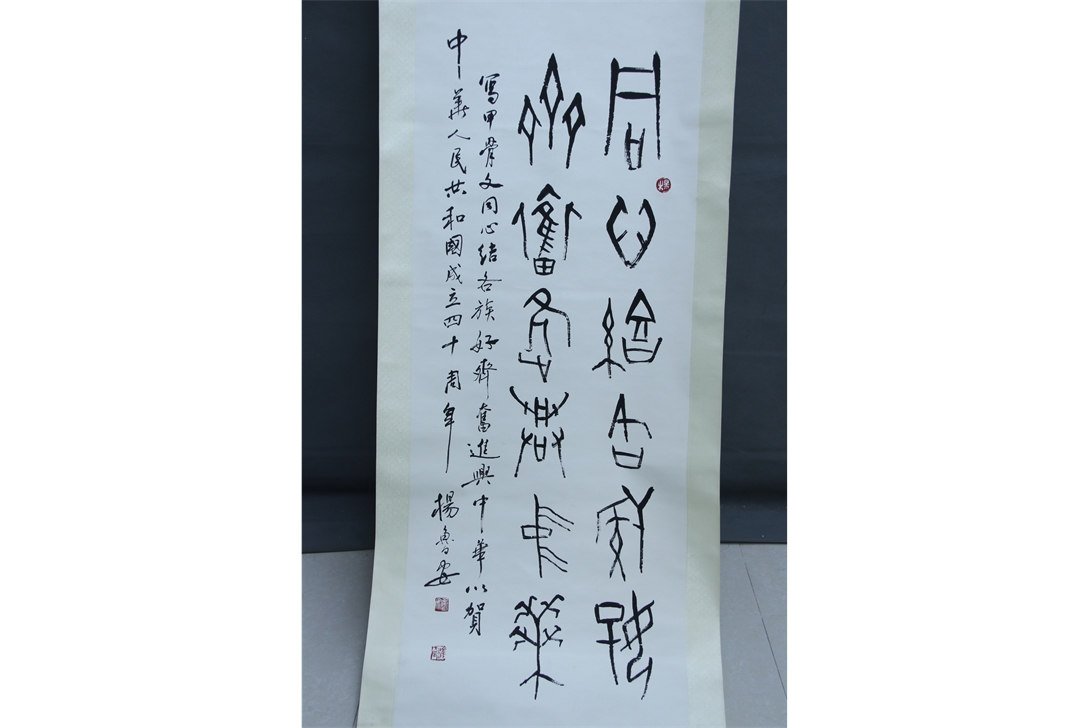 同心結各族好
齊奮進興中華
寫甲骨文同心結各族好齊奮進興中華以賀
中華人民共和國成立四十周年 楊魯安